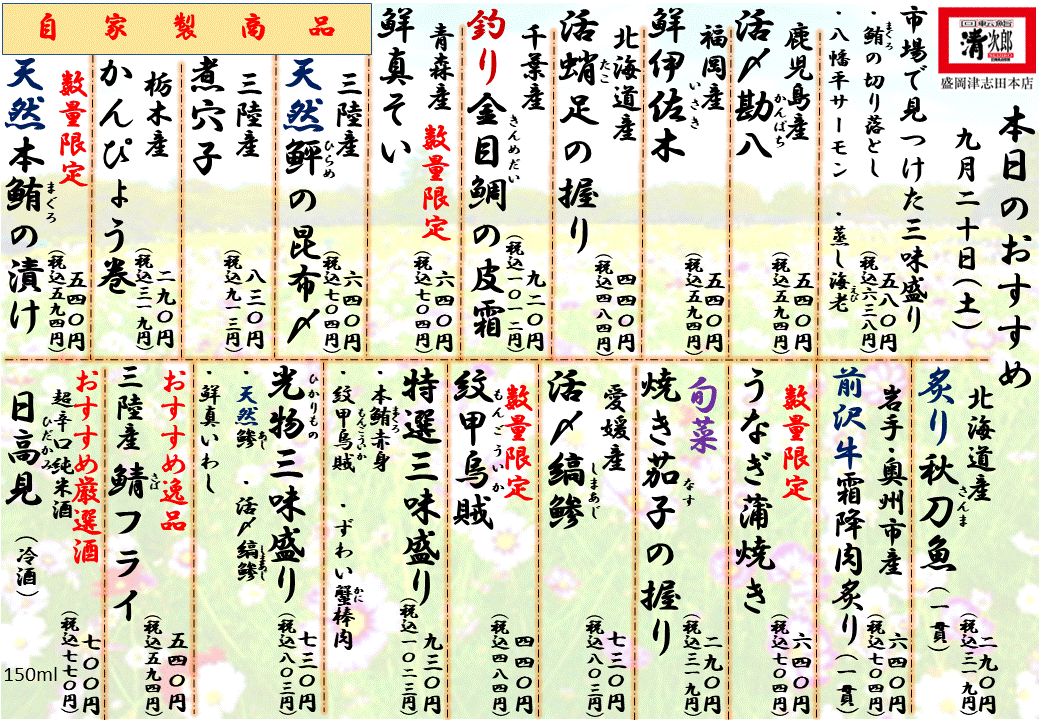 回転鮨
清次郎
盛岡津志田本店
本日のおすすめ
九月二十日(土)
市場で見つけた三味盛り
・鮪の切り落とし
まぐろ
・八幡平サーモン ・蒸し海老
えび
五八〇円
(税込六三八円)
鹿児島産
活〆勘八
かんぱち
五四〇円
(税込五九四円)
福岡産
鮮伊佐木
いさき
五四〇円
(税込五九四円)
北海道産
活蛸足の握り
たこ
四四〇円
(税込四八四円)
千葉産
釣り金目鯛の皮霜
きんめだい
九二〇円
(税込一〇一二円)
青森産
数量限定
鮮真そい
六四〇円
(税込七〇四円)
自家製商品
三陸産
天然鮃の昆布〆
ひらめ
六四〇円
(税込七〇四円)
三陸産
煮穴子
八三〇円
(税込九一三円)
栃木産
かんぴょう巻
二九〇円
(税込三一九円)
数量限定
天然本鮪の漬け
まぐろ
五四〇円
(税込五九四円)
北海道産
炙り秋刀魚(一貫)
さんま
二九〇円
(税込三一九円)
岩手・奥州市産
前沢牛霜降肉炙り(一貫)
六四〇円
(税込七〇四円)
数量限定
うなぎ蒲焼き
六四〇円
(税込七〇四円)
旬菜
焼き茄子の握り
なす
二九〇円
(税込三一九円)
愛媛産
活〆縞鯵
しまあじ
七三〇円
(税込八〇三円)
数量限定
紋甲烏賊
もんごういか
四四〇円
(税込四八四円)
特選三味盛り
・本鮪赤身 ・ずわい蟹棒肉
まぐろ
かに
・紋甲烏賊
もんごういか
九三〇円
(税込一〇二三円)
光物三味盛り
ひかりもの
・天然鯵 ・活〆縞鯵
あじ
しまあじ
・鮮真いわし
七三〇円
(税込八〇三円)
おすすめ逸品
三陸産 鯖フライ
さば
五四〇円
(税込五九四円)
おすすめ厳選酒
超辛口純米酒
日高見(冷酒)
ひだかみ
七〇〇円
(税込七七〇円)
150ml